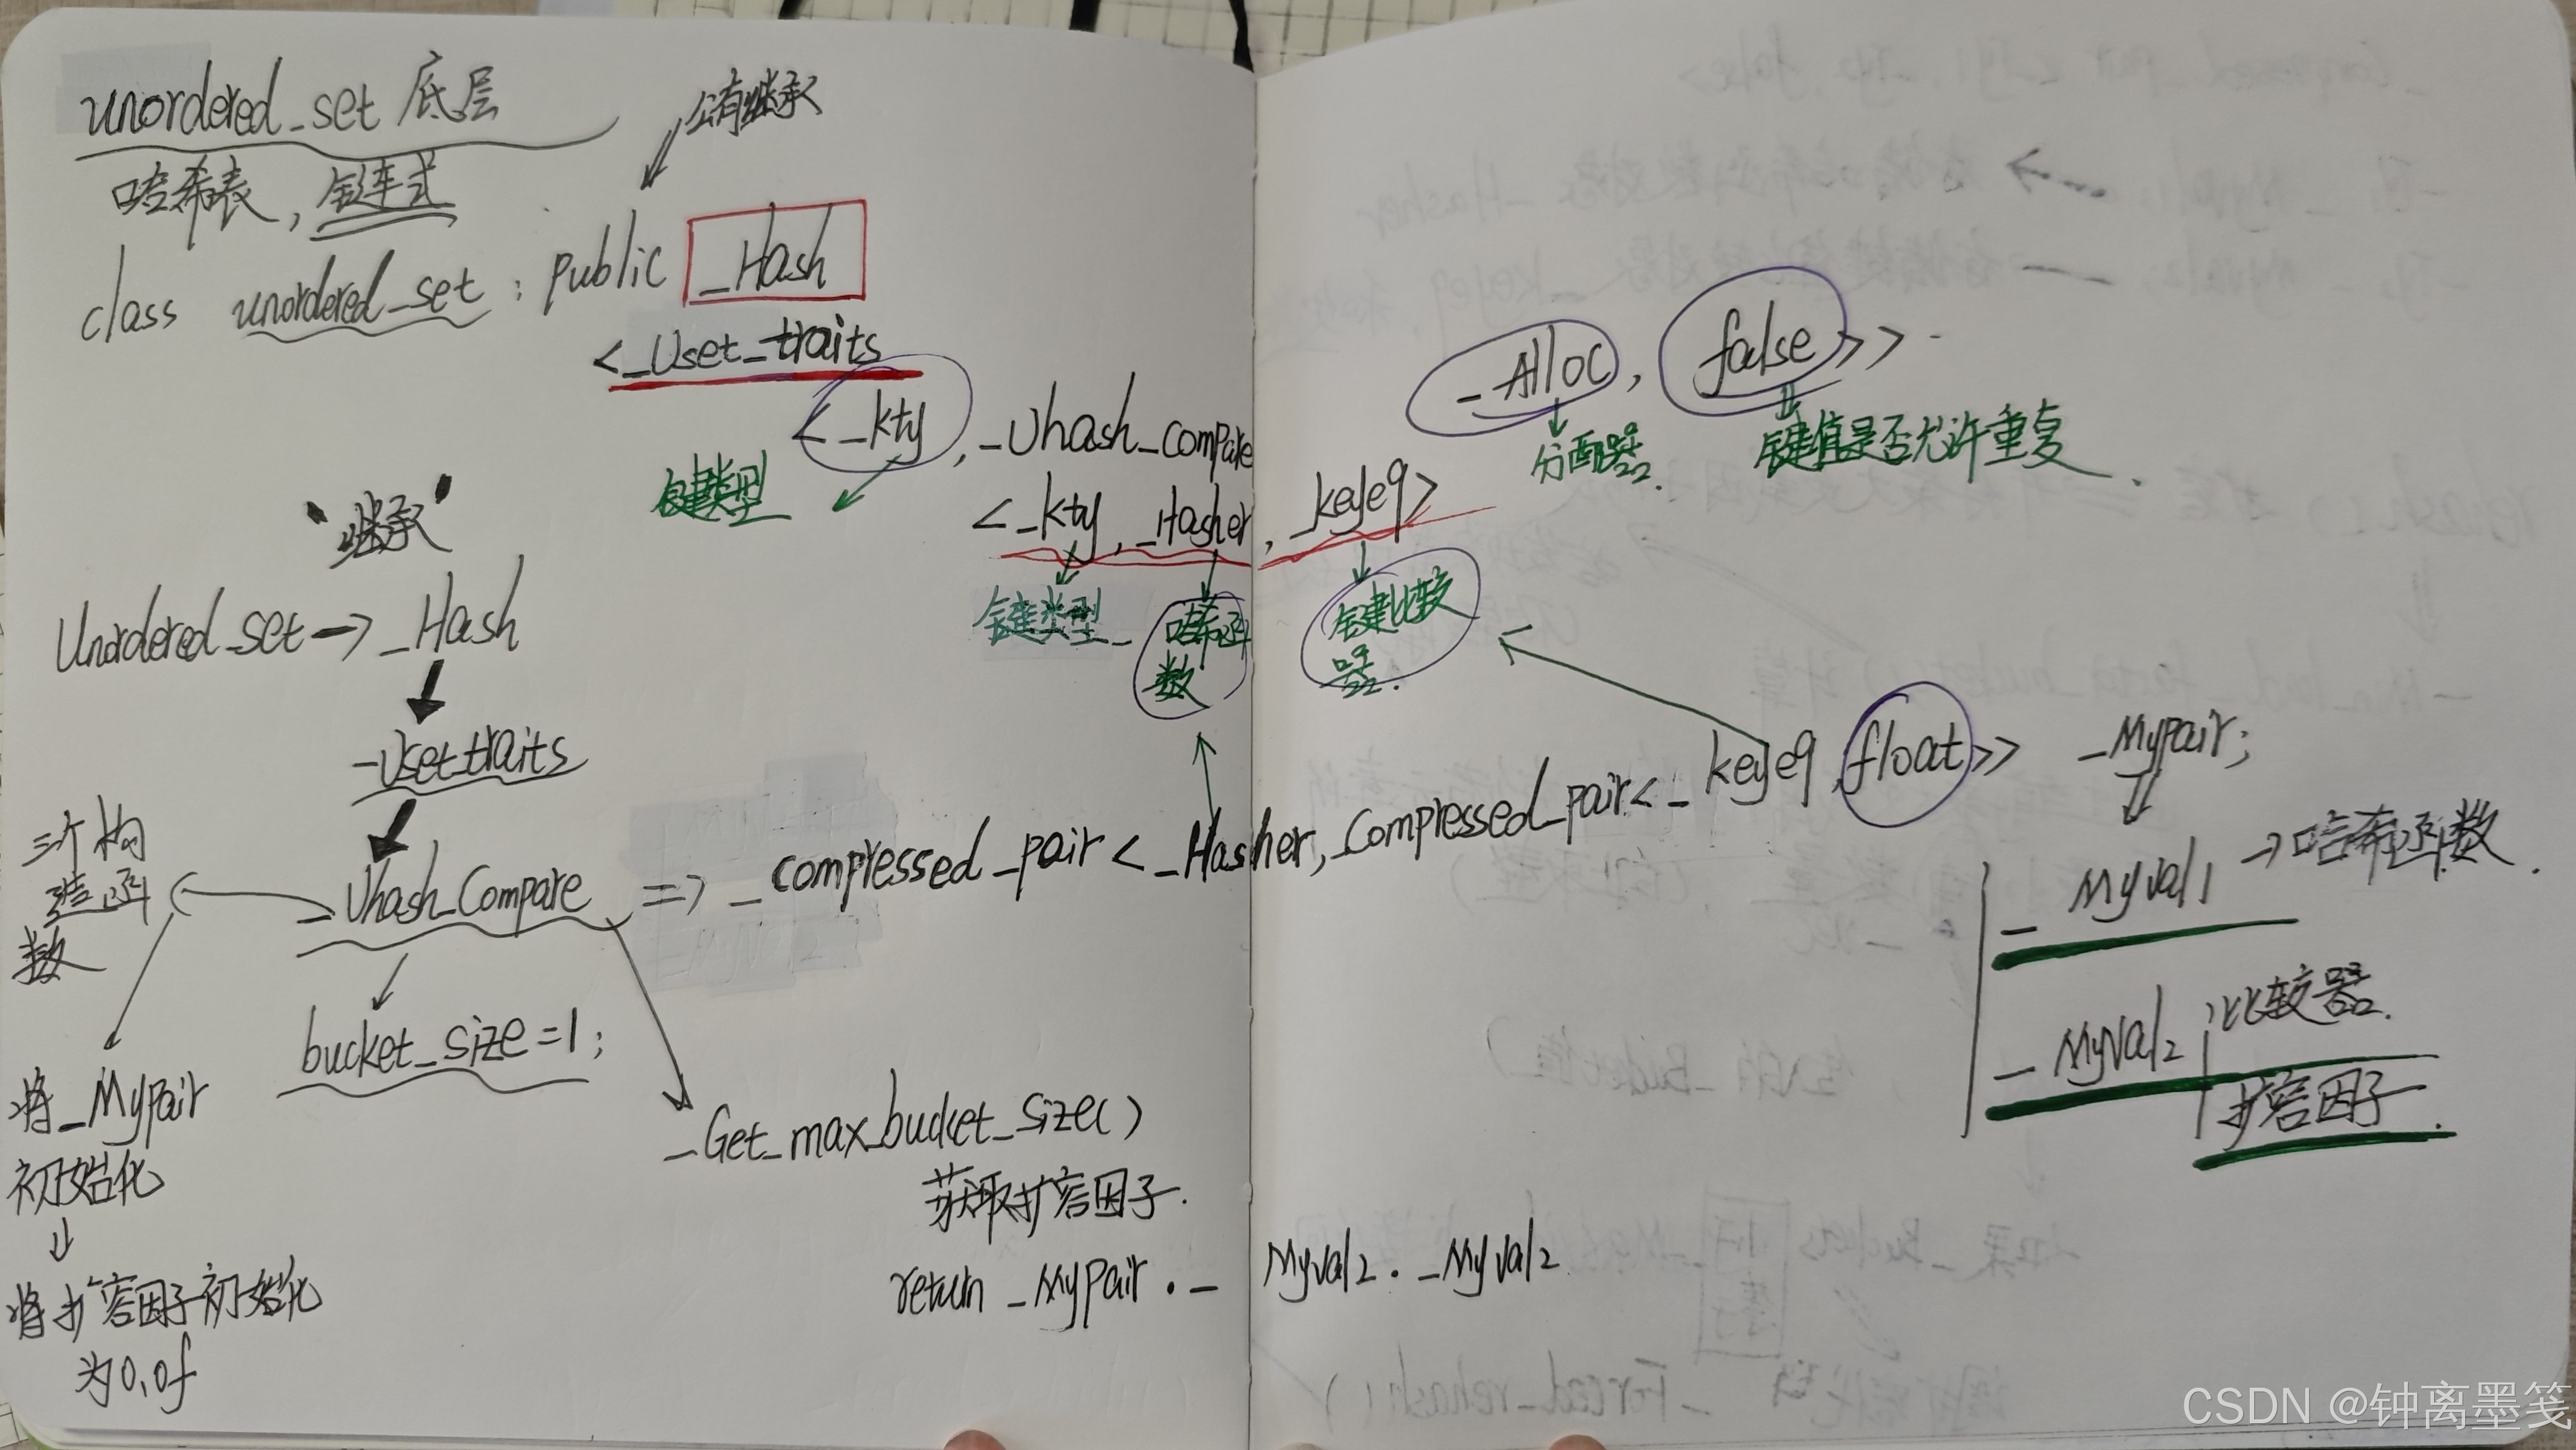 unordered_set 底层
哈希表,链式
公有继承
class unordered_set : public _Hash
<_Uset_traits
<_kty, _Uhash_compare
<_kty, _Hasher, _keyeq>
_Alloc, false>>
分配器.
键值是否允许重复.
键类型
键类型
哈希函数
键比较器.
"继承"
Unordered_set → _Hash
_Uset_traits
_Uhash_Compare => _compressed_pair<_Hasher, _Compressed_pair<_keyeq, float>> _Mypair;
三个构造函数
将_Mypair
初始化
将扩容因子初始化
为0.0f
bucket_size=1;
_Get_max_bucket_size()
获取扩容因子.
return _Mypair._Myval2._Myval2
_Myval1 → 哈希函数.
_Myval2
比较器.
扩容因子.
CSDN @钟离墨笺